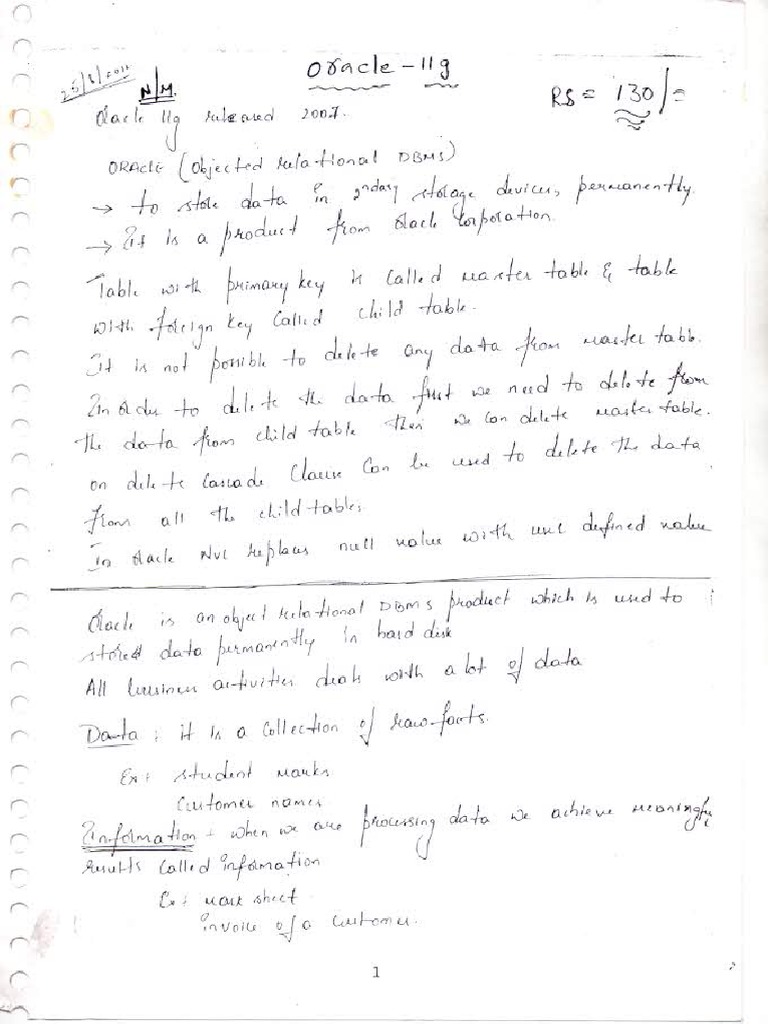 Oracle - 11g
25/8/2011
N/M.
RS = 130/=
Oracle 11g released 2007.
ORACLE (Objected relational DBMS)
→ to store data in 2ndary storage devices, permanently.
→ It is a product from Oracle Corporation.
Table with primary key is called master table & table
with foreign key called child table.
It is not possible to delete any data from master table.
In order to delete the data first we need to delete from
the data from child table then we can delete master table.
on delete Cascade Clause can be used to delete the data
from all the child tables
In Oracle NVL replaces null value with user defined value
Oracle is an object relational DBMS product which is used to
stored data permanently in hard disk
All business activities deals with a lot of data
Data : it is a collection of raw facts.
Ex: student marks
Customer names
Information : when we are processing data we achieve meaningful
results called information
Ex: mark sheet
invoice of a customer.
1